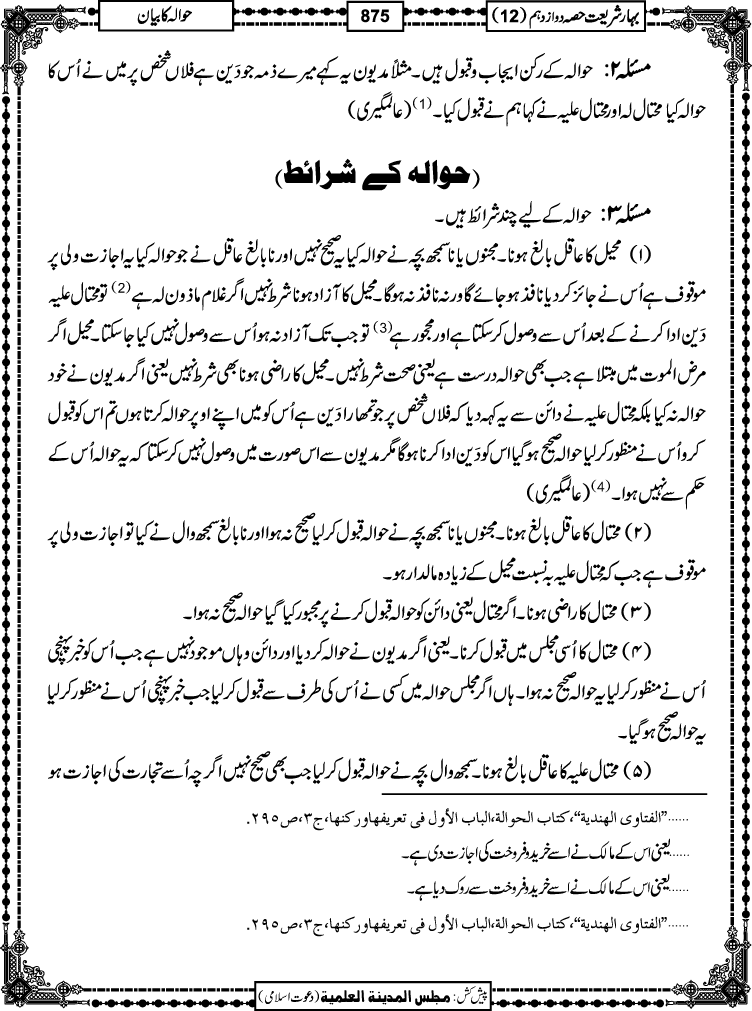 بہارشریعت حصہ دوازدہم (12)
875
حوالہ کا بیان
مسئلہ ۲: حوالہ کے رکن ایجاب وقبول ہیں۔ مثلاً مدیون یہ کہے میرے ذمہ جو دَین ہے فلاں شخص پر میں نے اُس کا
حوالہ کیا محتال لہ اور محتال علیہ نے کہا ہم نے قبول کیا۔(1) (عالمگیری)
(حوالہ کے شرائط)
مسئلہ ۳: حوالہ کے لیے چند شرائط ہیں۔
(۱) محیل کا عاقل بالغ ہونا۔ مجنوں یا ناسمجھ بچہ نے حوالہ کیا یہ صحیح نہیں اور نابالغ عاقل نے جو حوالہ کیا یہ اجازت ولی پر
موقوف ہے اُس نے جائز کردیا نافذ ہوجائے گا ورنہ نافذ نہ ہوگا۔ محیل کا آزاد ہونا شرط نہیں اگر غلام ماذون لہ ہے(2) تو محتال علیہ
دَین ادا کرنے کے بعد اُس سے وصول کرسکتا ہے اور مجور ہے(3) تو جب تک آزاد نہ ہو اُس سے وصول نہیں کیا جاسکتا۔ محیل اگر
مرض الموت میں مبتلا ہے جب بھی حوالہ درست ہے یعنی صحت شرط نہیں۔ محیل کا راضی ہونا بھی شرط نہیں یعنی اگر مدیون نے خود
حوالہ نہ کیا بلکہ محتال علیہ نے دائن سے یہ کہہ دیا کہ فلاں شخص پر جو تمھارا دَین ہے اُس کو میں اپنے اوپر حوالہ کرتا ہوں تم اس کو قبول
کرو اُس نے منظور کرلیا حوالہ صحیح ہوگیا اس کو دَین ادا کرنا ہوگا مگر مدیون سے اس صورت میں وصول نہیں کرسکتا کہ یہ حوالہ اُس کے
حکم سے نہیں ہوا۔(4) (عالمگیری)
(۲) محتال کا عاقل بالغ ہونا۔ مجنوں یا ناسمجھ بچہ نے حوالہ قبول کرلیا صحیح نہ ہوا اور نابالغ سمجھ وال نے کیا تو اجازت ولی پر
موقوف ہے جب کہ محتال علیہ بہ نسبت محیل کے زیادہ مالدار ہو۔
(۳) محتال کا راضی ہونا۔ اگر محتال یعنی دائن کو حوالہ قبول کرنے پر مجبور کیا گیا حوالہ صحیح نہ ہوا۔
(۴) محتال کا اُسی مجلس میں قبول کرنا۔ یعنی اگر مدیون نے حوالہ کردیا اور دائن وہاں موجود نہیں ہے جب اُس کو خبر پہنچی
اُس نے منظور کرلیا یہ حوالہ صحیح نہ ہوا۔ ہاں اگر مجلس حوالہ میں کسی نے اُس کی طرف سے قبول کرلیا جب خبر پہنچی اُس نے منظور کرلیا
یہ حوالہ صحیح ہوگیا۔
(۵) محتال علیہ کا عاقل بالغ ہونا۔ سمجھ وال بچہ نے حوالہ قبول کرلیا جب بھی صحیح نہیں اگرچہ اُسے تجارت کی اجازت ہو
......"الفتاوی الھندیة"، کتاب الحوالة، الباب الأول فی تعریفھا ورکنھا، ج۳، ص۲۹۵.
......یعنی اس کے مالک نے اسے خرید وفروخت کی اجازت دی ہے۔
......یعنی اس کے مالک نے اسے خرید وفروخت سے روک دیا ہے۔
......"الفتاوی الھندیة"، کتاب الحوالة، الباب الأول فی تعریفھا ورکنھا، ج۳، ص۲۹۵.
پیش کش: مجلس المدینة العلمیة (دعوت اسلامی)